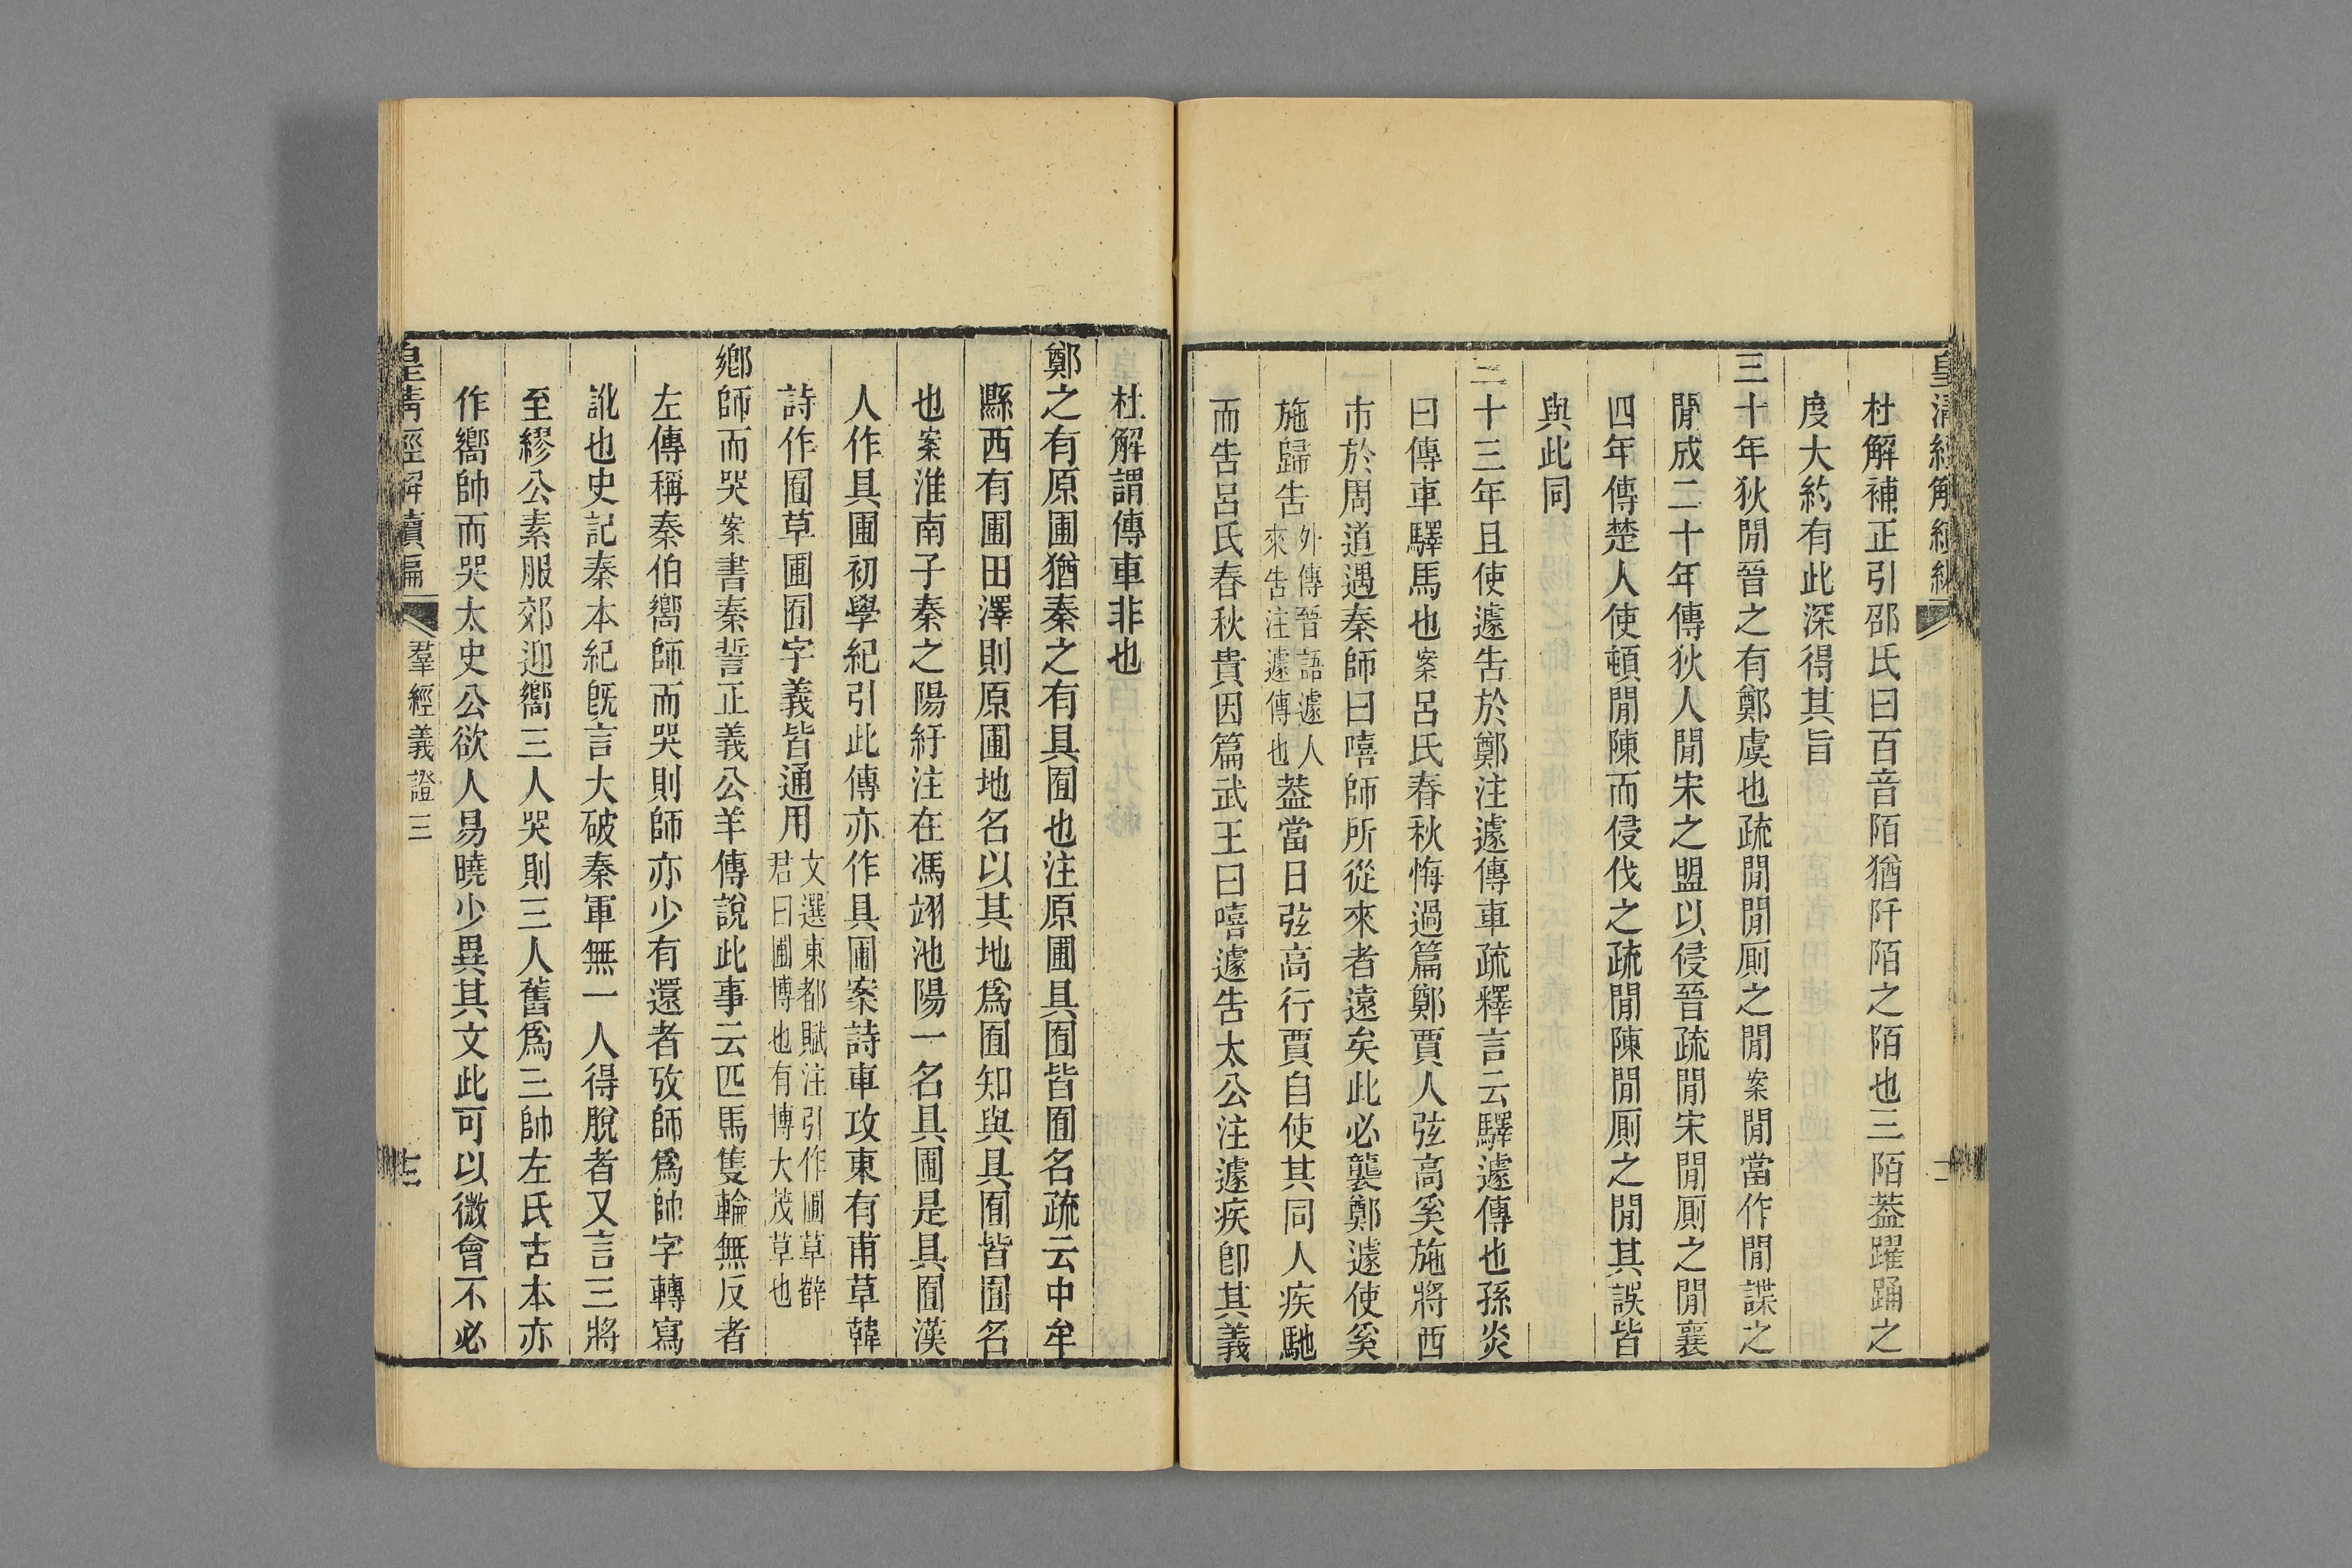 皇清經解續編
杜解補正引邵氏曰百音陌猶阡陌之陌也三陌葢躍踊之
度大約有此深得其旨
三十年狄閒晉之有鄭虞也疏閒閒厠之閒案閒當作閒諜之
閒成二十年傳狄人閒宋之盟以侵晉疏閒宋閒厠之閒襄
四年傳楚人使頓閒陳而侵伐之疏閒陳閒厠之閒其誤皆
與此同
三十三年且使遽告於鄭注遽傳車疏釋言云驛遽傳也孫炎
曰傳車驛馬也案呂氏春秋悔過篇鄭賈人弦高奚施將西
市於周道遇秦師曰嘻師所從來者遠矣此必襲鄭遽使奚
施歸告外傳晉語遽人來告注遽傳也葢當日弦高行賈自使其同人疾馳
而告呂氏春秋貴因篇武王曰嘻遽告太公注遽疾卽其義
杜解謂傳車非也
鄭之有原圃猶秦之有具囿也注原圃具囿皆囿名疏云中牟
縣西有圃田澤則原圃地名以其地爲囿知與具囿皆囿名
也案淮南子秦之陽紆注在馮翊池陽一名具圃是具囿漢
人作具圃初學紀引此傳亦作具圃案詩車攻東有甫草韓
詩作圃草圃囿字義皆通用文選東都賦注引作圃草薛君曰圃博也有博大茂草也
鄉師而哭案書秦誓正義公羊傳說此事云匹馬隻輪無反者
左傳稱秦伯嚮師而哭則師亦少有還者攷師爲帥字轉寫
訛也史記秦本紀旣言大破秦軍無一人得脫者又言三將
至繆公素服郊迎嚮三人哭則三人舊爲三帥左氏古本亦
作嚮帥而哭太史公欲人易曉少異其文此可以微會不必
皇清經解續編 羣經義證三